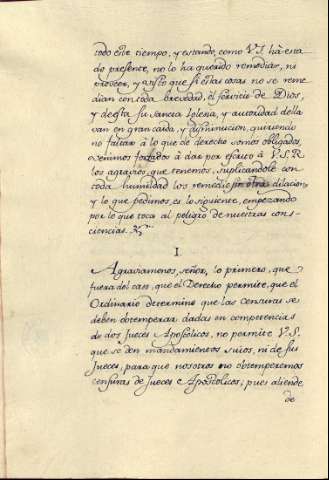 todo este tiempo, y estando, como V.S. há esta
do presente, no lo ha querido remediar, ni
proveer, y visto que si estas cosas no se reme
dian con toda brevedad, el servicio de Dios,
y desta su sancta Iglesia, y autoridad della
van en gran caida, y disminucion, queriendo
no faltar à lo que de derecho somos obligados,
venimos forzados à dar por escrito à V.S.R.
los agravios, que tenemos, suplicandole con
toda humildad los remedie sin otra dilacion,
y lo que pedimos, es lo siguiente, empezando
por lo que toca al peligro de nuestras cons-
ciencias.
I
Agraviamonos, señor, lo primero, que
fuera del caso, que el Derecho permite, que el
Ordinario determine que las censuras se
deben obtemperar dadas en competencias
de dos Jueces Apostólicos, no permite V.S.
que se den mandamientos suios, ni de sus
Jueces, para que nosotros no obtemperemos
censuras de Jueces Apostolicos; pues aliende
de